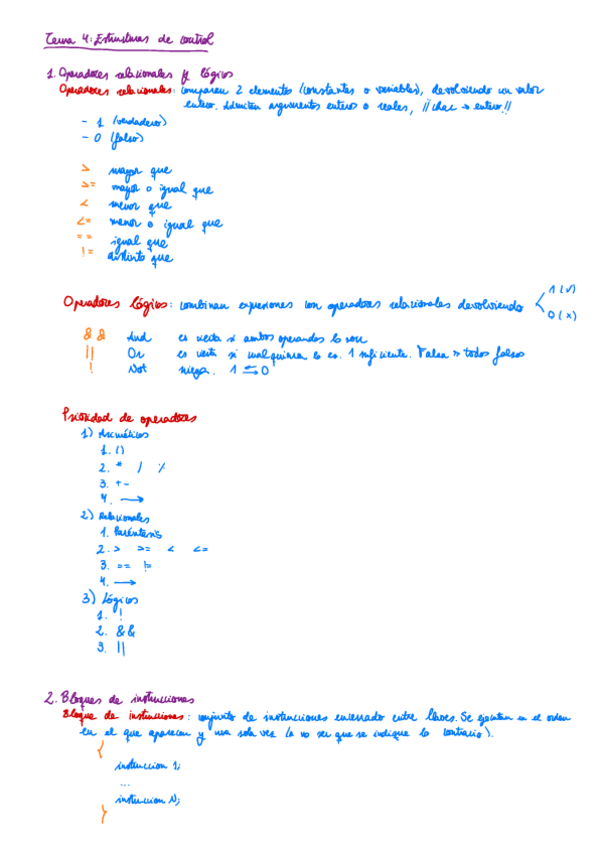 Tema 4: Estructuras de control
1. Operadores relacionales y lógicos
Operadores relacionales: comparan 2 elementos (constantes o variables), devolviendo un valor
entero. Admiten argumentos enteros o reales, ¡¡char → entero!!
- 1 (verdadero)
- 0 (falso)
> mayor que
>= mayor o igual que
< menor que
<= menor o igual que
== igual que
!= distinto que
Operadores lógicos: combinan expresiones con operadores relacionales devolviendo
1 (✓)
0 (×)
&& And es cierta si ambos operandos lo son
|| Or es cierta si cualquiera lo es. 1 suficiente. Falsa » todos falsos
! Not niega. 1 ⇆ 0
Prioridad de operadores
1) Aritméticos
1. ()
2. * / %
3. + -
4. →
2) Relacionales
1. Paréntesis
2. > >= < <=
3. == !=
4. →
3) Lógicos
1. !
2. &&
3. ||
2. Bloques de instrucciones
Bloque de instrucciones: conjunto de instrucciones encerrado entre llaves. Se ejecutan en el orden
en el que aparecen y una sola vez (a no ser que se indique lo contrario).
{
instruccion 1;
...
instruccion N;
}